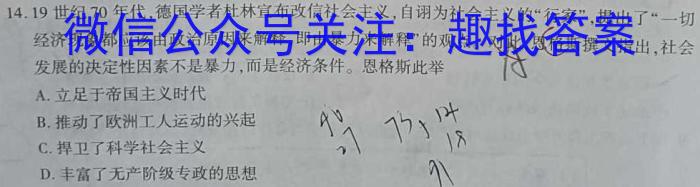 14.19世纪70年代,德国学者杜林宣布改信社会主义,自诩为社会主义的“行家”,提出了“一切
微信公众号关注：趣找答案
经济现象都应该由政治原因来解释,即由暴力来解释”的观点。对此,恩格斯撰文指出,社会
发展的决定性因素不是暴力,而是经济条件。恩格斯此举
A.立足于帝国主义时代
B.推动了欧洲工人运动的兴起
C.捍卫了科学社会主义
D.丰富了无产阶级专政的思想